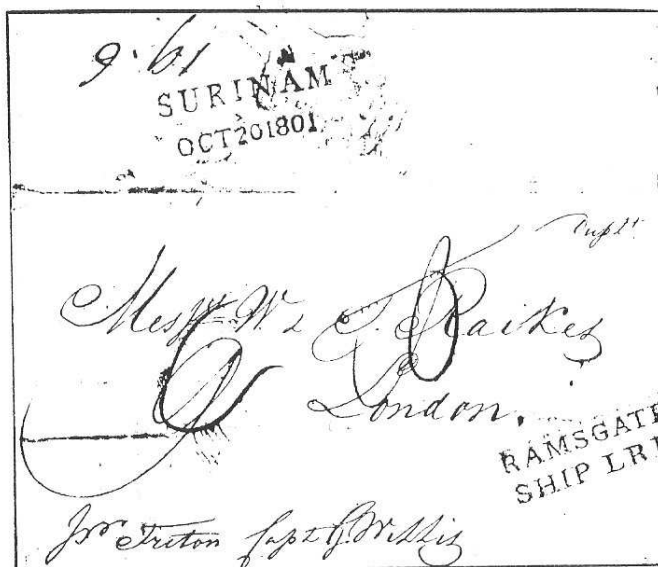 SURINAM
OCT201801
Dupl.t
Mess.rs W. & T. Raikes
London.
RAMSGATE
SHIP LRE
Pr Triton Capt G. Willis